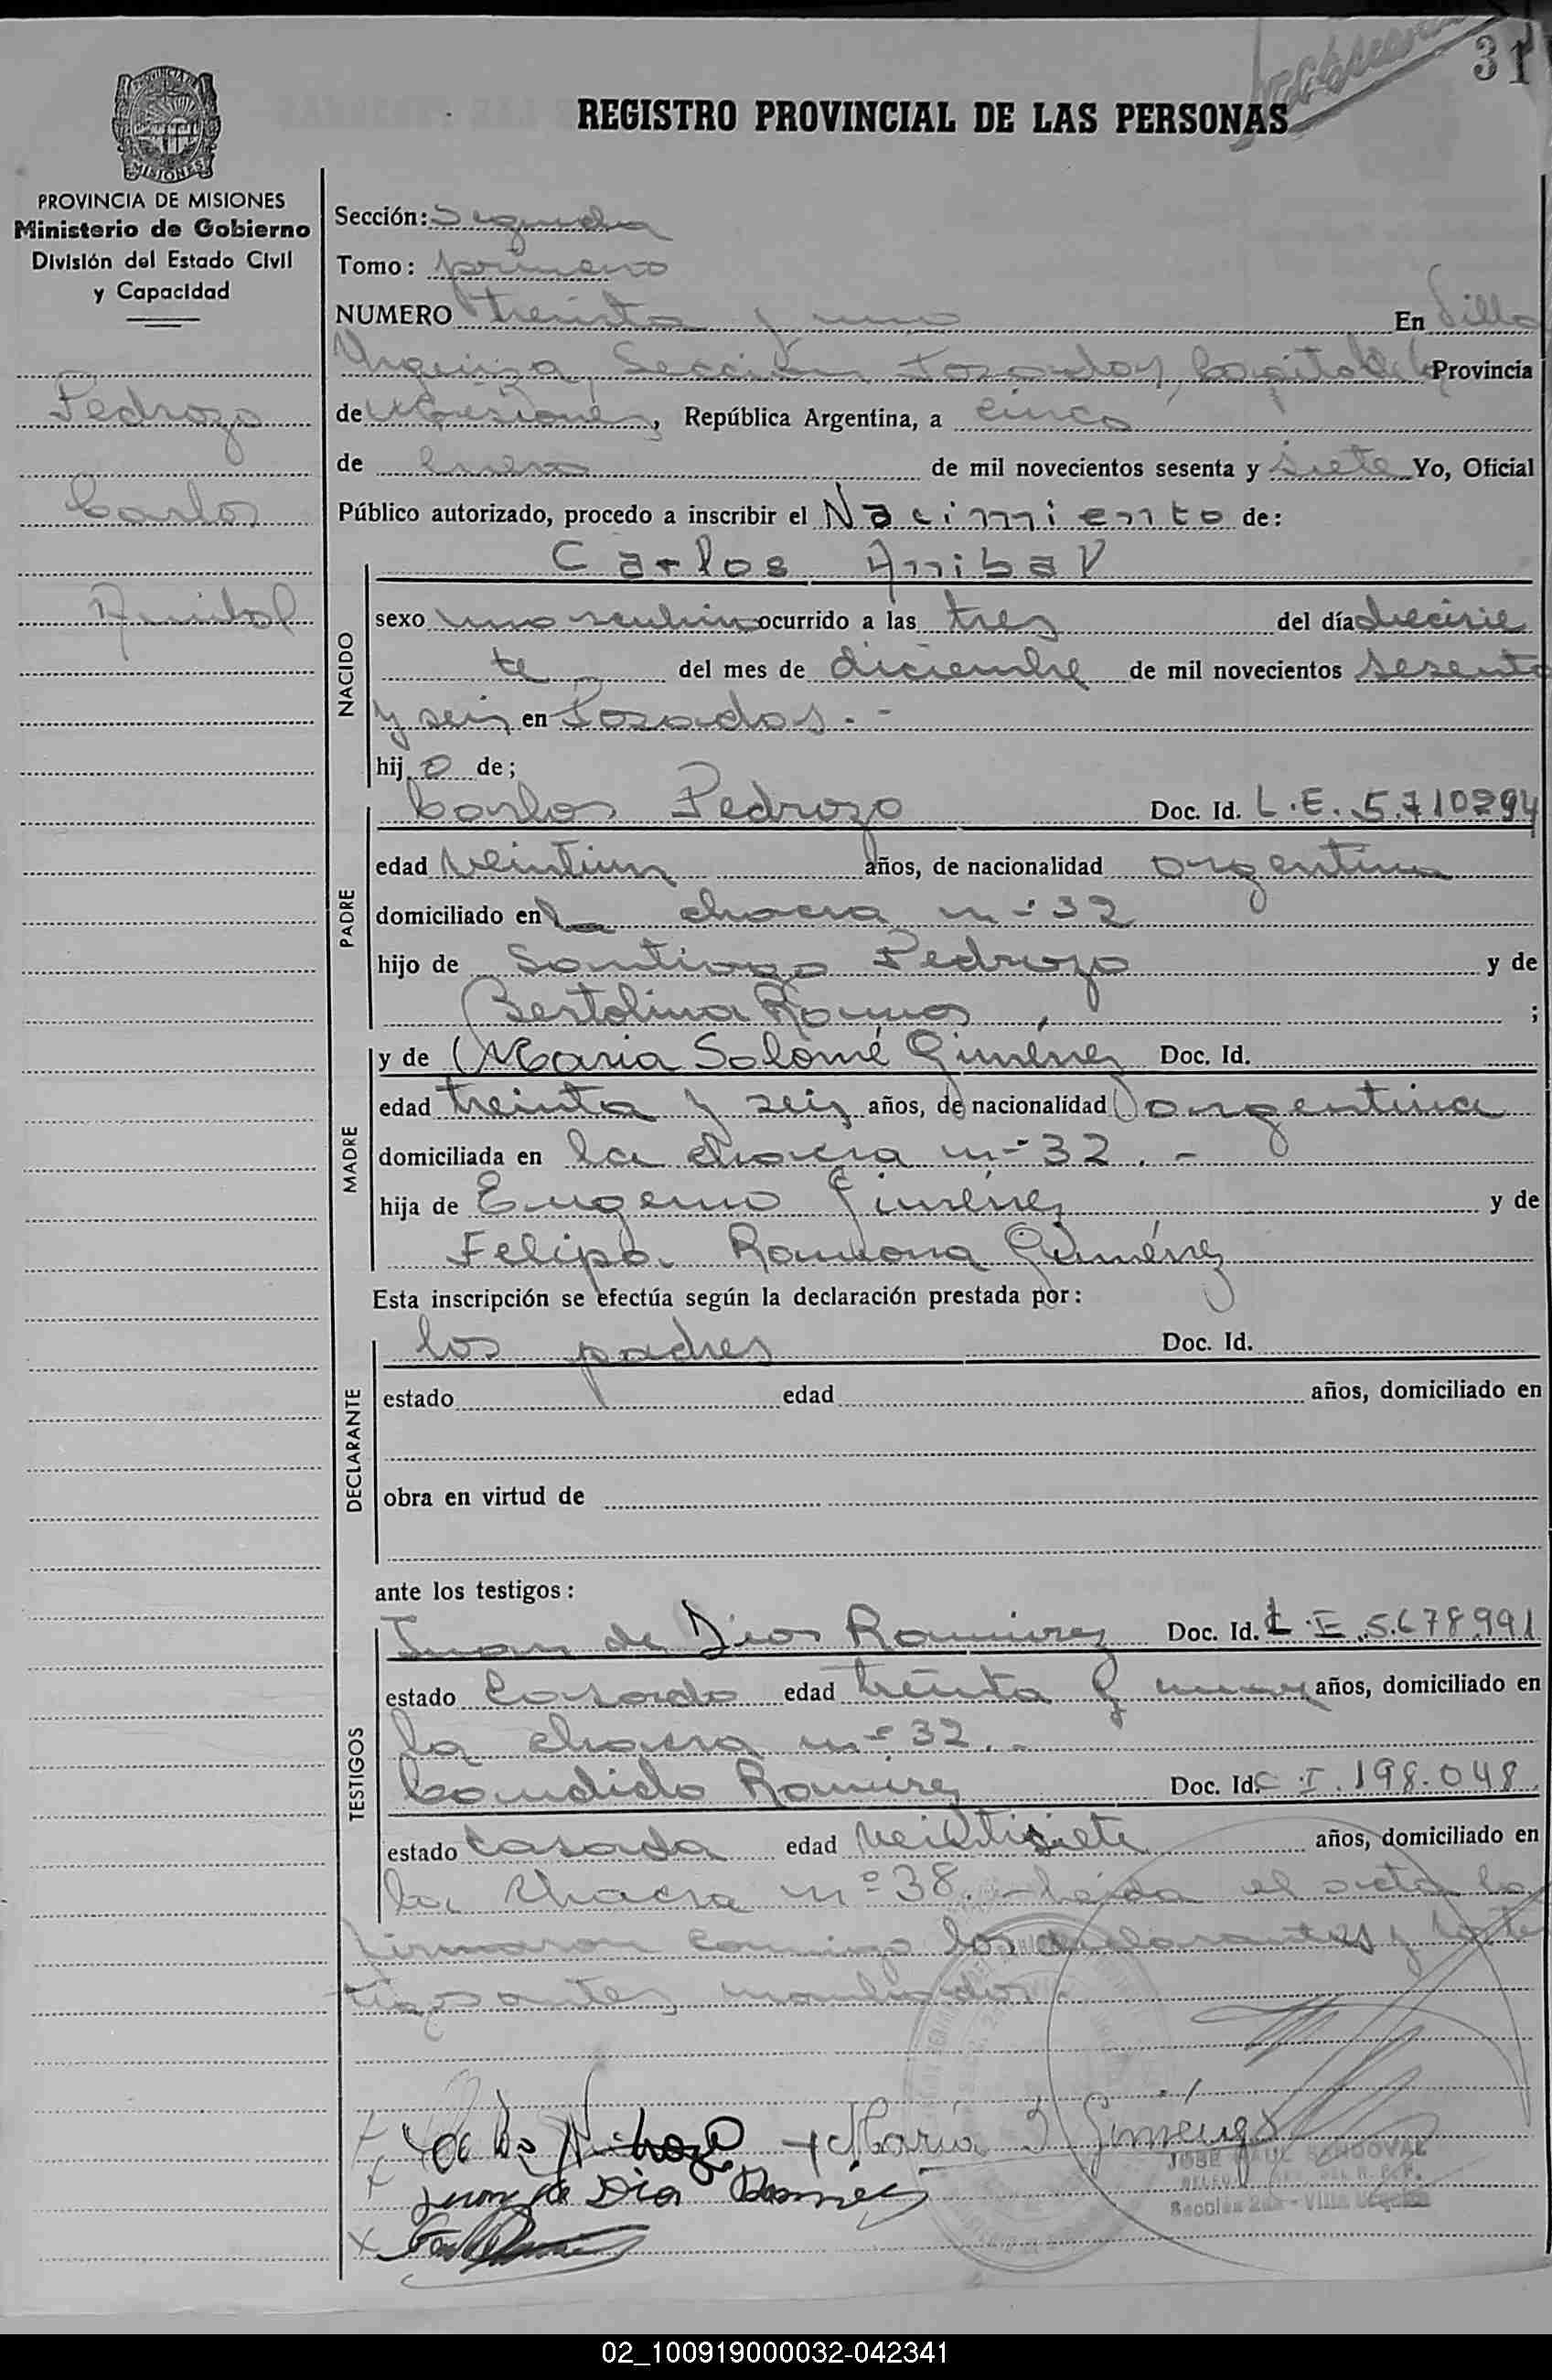 31
REGISTRO PROVINCIAL DE LAS PERSONAS
MISIONES
PROVINCIA DE MISIONES
Ministerio de Gobierno
División del Estado Civil
y Capacidad
Pedrozo
Carlos
Anibal
Sección: Segunda
Tomo: primero
NUMERO treinta y uno En Villa
Urquiza, Sección Posadas, Capital de la Provincia
de Misiones, República Argentina, a cinco
de Enero de mil novecientos sesenta y siete Yo, Oficial
Público autorizado, procedo a inscribir el Nacimiento de:
Carlos Anibal
NACIDO
sexo masculino ocurrido a las tres del día diecisie
te del mes de diciembre de mil novecientos sesenta
y seis en Posadas.-
hijo de;
PADRE
Carlos Pedrozo Doc. Id. L.E. 5.710294
edad veintiun años, de nacionalidad argentina
domiciliado en la chacra nº 32
hijo de Santiago Pedrozo y de
Bertolina Ramos ;
MADRE
y de Maria Salomé Giménez Doc. Id.
edad treinta y seis años, de nacionalidad argentina
domiciliada en la chacra nº 32.-
hija de Eugenio Giménez y de
Felipa Ramona Giménez
Esta inscripción se efectúa según la declaración prestada por:
DECLARANTE
los padres Doc. Id.
estado edad años, domiciliado en
obra en virtud de
ante los testigos:
TESTIGOS
Juan de Dios Ramirez Doc. Id. L.E. 5.678.991
estado Casado edad treinta y nueve años, domiciliado en
la chacra nº 32.-
Candido Ramirez Doc. Id. C.I. 198.048
estado casado edad veintisiete años, domiciliado en
la chacra nº 38.- Leida el acta la
firmaron conmigo los declarantes y los tes
tigos antes nombrados.
x Carlos Pedrozo x María S Giménez
x Juan de Dios Ramirez
x
JOSE RAUL SANDOVAL
Sección 2da - Villa Urquiza
02_100919000032-042341